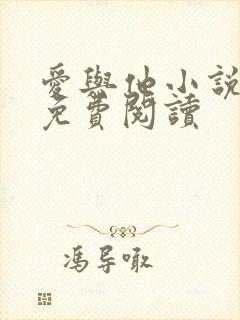 愛與他小說
免費閱讀
馮導噉